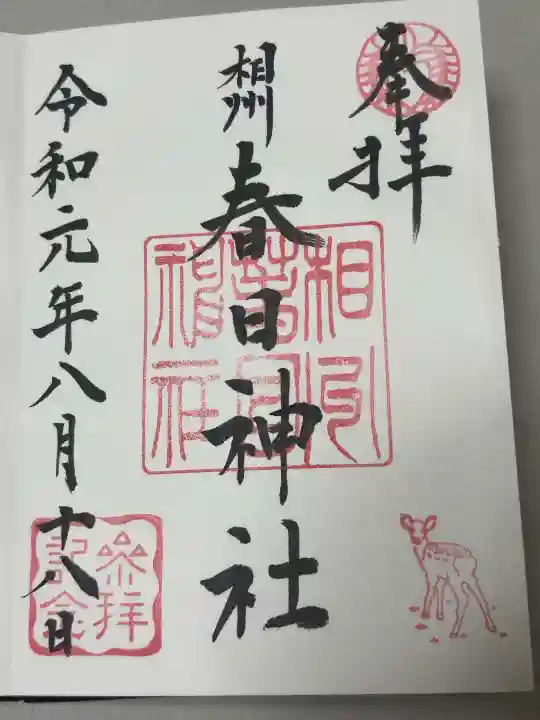 奉拝
相州
春日神社
相州
春日
神社
令和元年八月十八日
参拝
記念